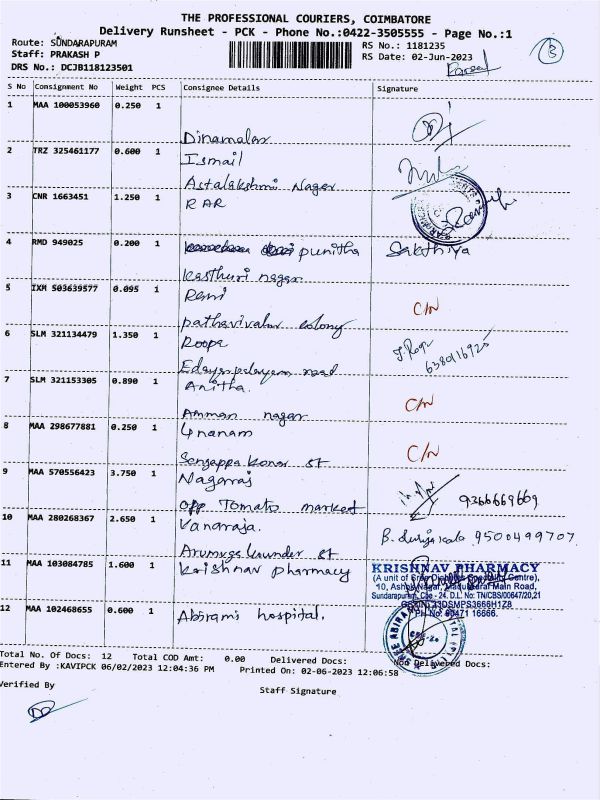 THE PROFESSIONAL COURIERS, COIMBATORE
Delivery Runsheet - PCK - Phone No.:0422-3505555 - Page No.:1
Route: SUNDARAPURAM
RS No.: 1181235
3
Staff: PRAKASH P
RS Date: 02-Jun-2023
DRS No.: DCJB118123501
S No Consignment No Weight PCS Consignee Details Signature
1 MAA 100053960 0.250 1
Dinamalar
2 TRZ 325461177 0.600 1 Ismail
Astalakshmi Nagar
3 CNR 1663451 1.250 1 RAR
4 RMD 949025 0.200 1 punitha Sakthiya
Kasthuri nagar
5 IXM 503639577 0.095 1 Remi C/N
pathavivalar colony
6 SLM 321134479 1.350 1 Roopa
Edayarpalayam road
7 SLM 321153305 0.890 1 Anitha. C/N
Amman nagar
8 MAA 298677881 0.250 1 Gnanam C/N
Sengappa konar st
9 MAA 570556423 3.750 1 Nagaraj 9366669669
opp Tomato market
10 MAA 280268367 2.650 1 Vanaraja. 9500499707
Arumuga kounder st
11 MAA 103084785 1.600 1 Krishnav pharmacy
KRISHNAV PHARMACY
(A unit of Sree Diabetes Speciality Centre),
10, Ashok Nagar, Madukkarai Main Road,
Sundarapuram, Cbe - 24. D.L. No: TN/CBS/00647/20,21
12 MAA 102468655 0.600 1 Abirami hospital.
Total No. Of Docs: 12 Total COD Amt: 0.00 Delivered Docs: Non Delivered Docs:
Entered By :KAVIPCK 06/02/2023 12:04:36 PM Printed On: 02-06-2023 12:06:58
Verified By
Staff Signature